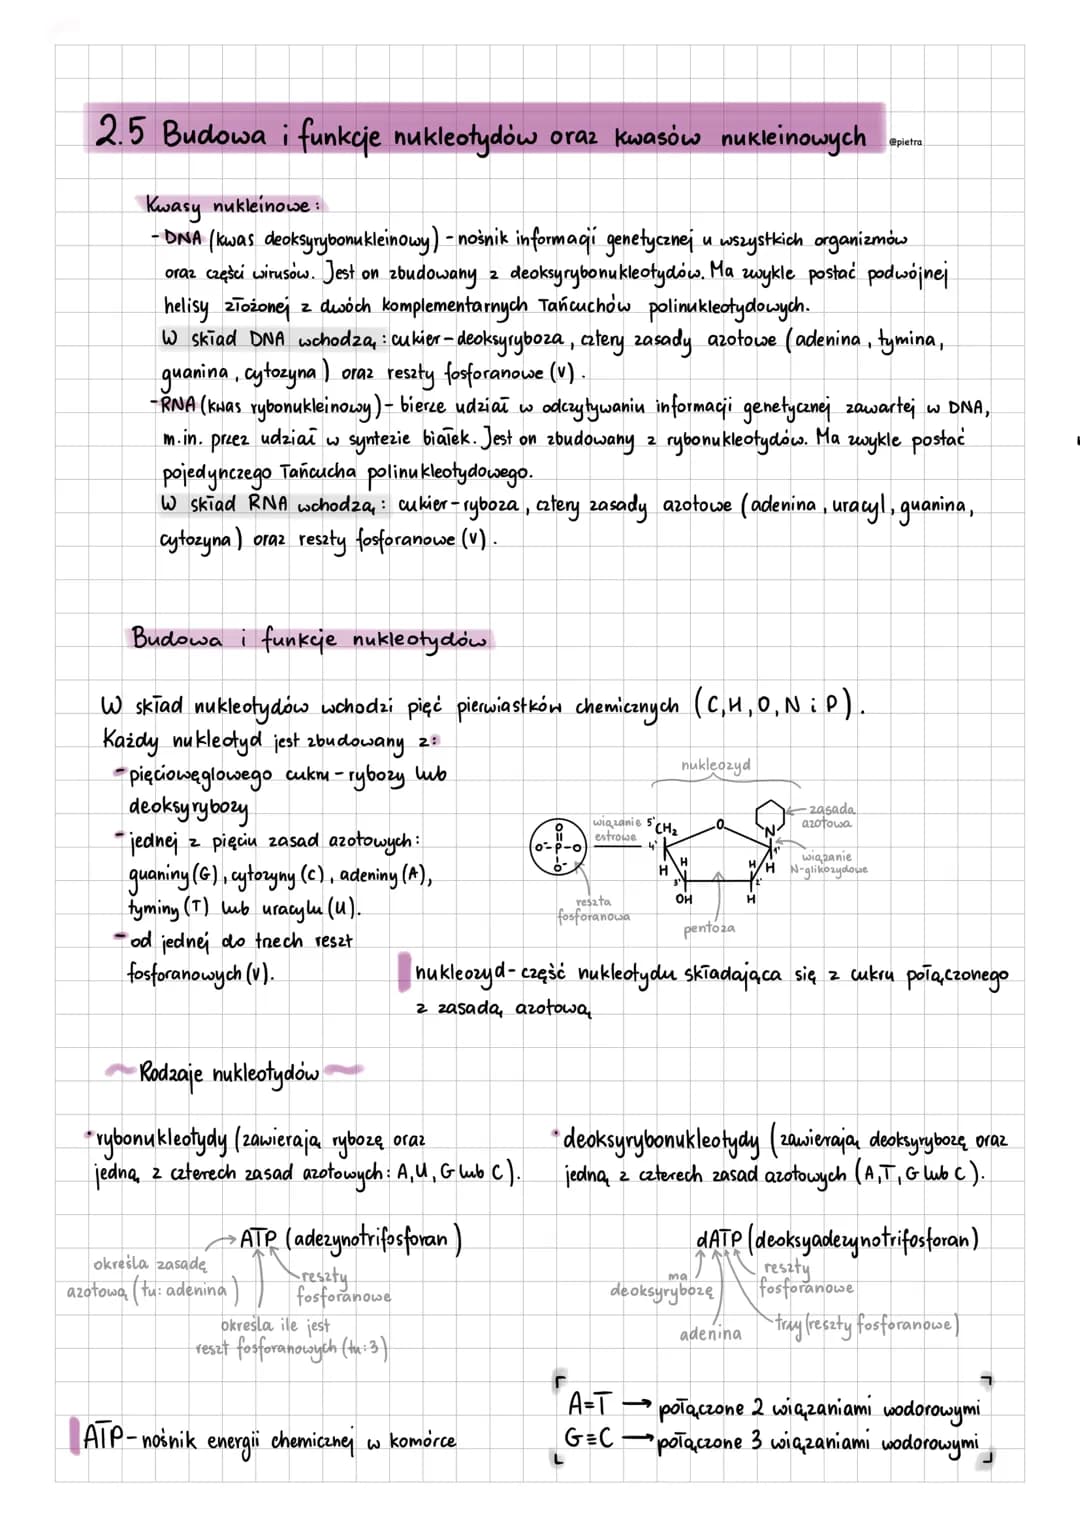 2.5 Budowa i funkcje nukleotydów oraz kwasów nukleinowych @pietra
Kwasy nukleinowe:
- DNA (kwas deoksyrybonukleinowy) - nośnik informacji genetycznej u wszystkich organizmów
oraz części wirusów. Jest on zbudowany z deoksyrybonukleotydów. Ma zwykle postać podwójnej
helisy złożonej z dwóch komplementarnych łańcuchów polinukleotydowych.
W skład DNA wchodzą: cukier - deoksyryboza, cztery zasady azotowe (adenina, tymina,
guanina, cytozyna) oraz reszty fosforanowe (V).
- RNA (kwas rybonukleinowy) - bierze udział w odczytywaniu informacji genetycznej zawartej w DNA,
m.in. przez udział w syntezie białek. Jest on zbudowany z rybonukleotydów. Ma zwykle postać
pojedynczego łańcucha polinukleotydowego.
W skład RNA wchodzą: cukier - ryboza, cztery zasady azotowe (adenina, uracyl, guanina,
cytozyna) oraz reszty fosforanowe (V).
Budowa i funkcje nukleotydów
W skład nukleotydów wchodzi pięć pierwiastków chemicznych (C, H, O, N i P).
Każdy nukleotyd jest zbudowany z:
- pięciowęglowego cukru - rybozy lub
deoksyrybozy
- jednej z pięciu zasad azotowych:
guaniny (G), cytozyny (C), adeniny (A),
tyminy (T) lub uracylu (U).
- od jednej do trzech reszt
fosforanowych (V).
nukleozyd
zasada
azotowa
wiązanie
estrowe
5' CH₂
O
N
4'
1'
O
O⁻-P-O
O⁻
H
H
H
H
3'
2'
OH
H
wiązanie
N-glikozydowe
reszta
fosforanowa
pentoza
nukleozyd - część nukleotydu składająca się z cukru połączonego
z zasadą azotową
Rodzaje nukleotydów
• rybonukleotydy (zawierają rybozę oraz
jedną z czterech zasad azotowych: A, U, G lub C).
• deoksyrybonukleotydy (zawierają deoksyrybozę oraz
jedną z czterech zasad azotowych (A, T, G lub C).
ATP (adezynotrifosforan)
określa zasadę
azotową (tu: adenina)
reszty
fosforanowe
określa ile jest
reszt fosforanowych (tu: 3)
dATP (deoksyadezynotrifosforan)
ma
deoksyrybozę
reszty
fosforanowe
adenina
trzy (reszty fosforanowe)
ATP - nośnik energii chemicznej w komórce
A=T → połączone 2 wiązaniami wodorowymi
G≡C → połączone 3 wiązaniami wodorowymi